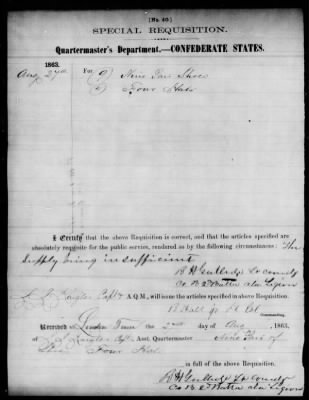 [No. 40.]
SPECIAL REQUISITION.
Quartermaster's Department,—CONFEDERATE STATES.
1863.
Aug 2nd For (9) Nine Pair Shoes
(4) Four Hats
I Certify that the above Requisition is correct, and that the articles specified are
absolutely requisite for the public service, rendered so by the following circumstances: The
supply being insufficient
Lt comdg
Co B 2 Batta ala Legion
Capt A. Q. M., will issue the articles specified in above Requisition.
B Hall jr Lt Col
Commanding.
Received at Tenn the 2nd day of Aug 1863,
of Capt Asst. Quartermaster Nine Pair of
Shoes Four Hats
in full of the above Requisition.
Lt comdg
Co B 2 Batta ala Legion